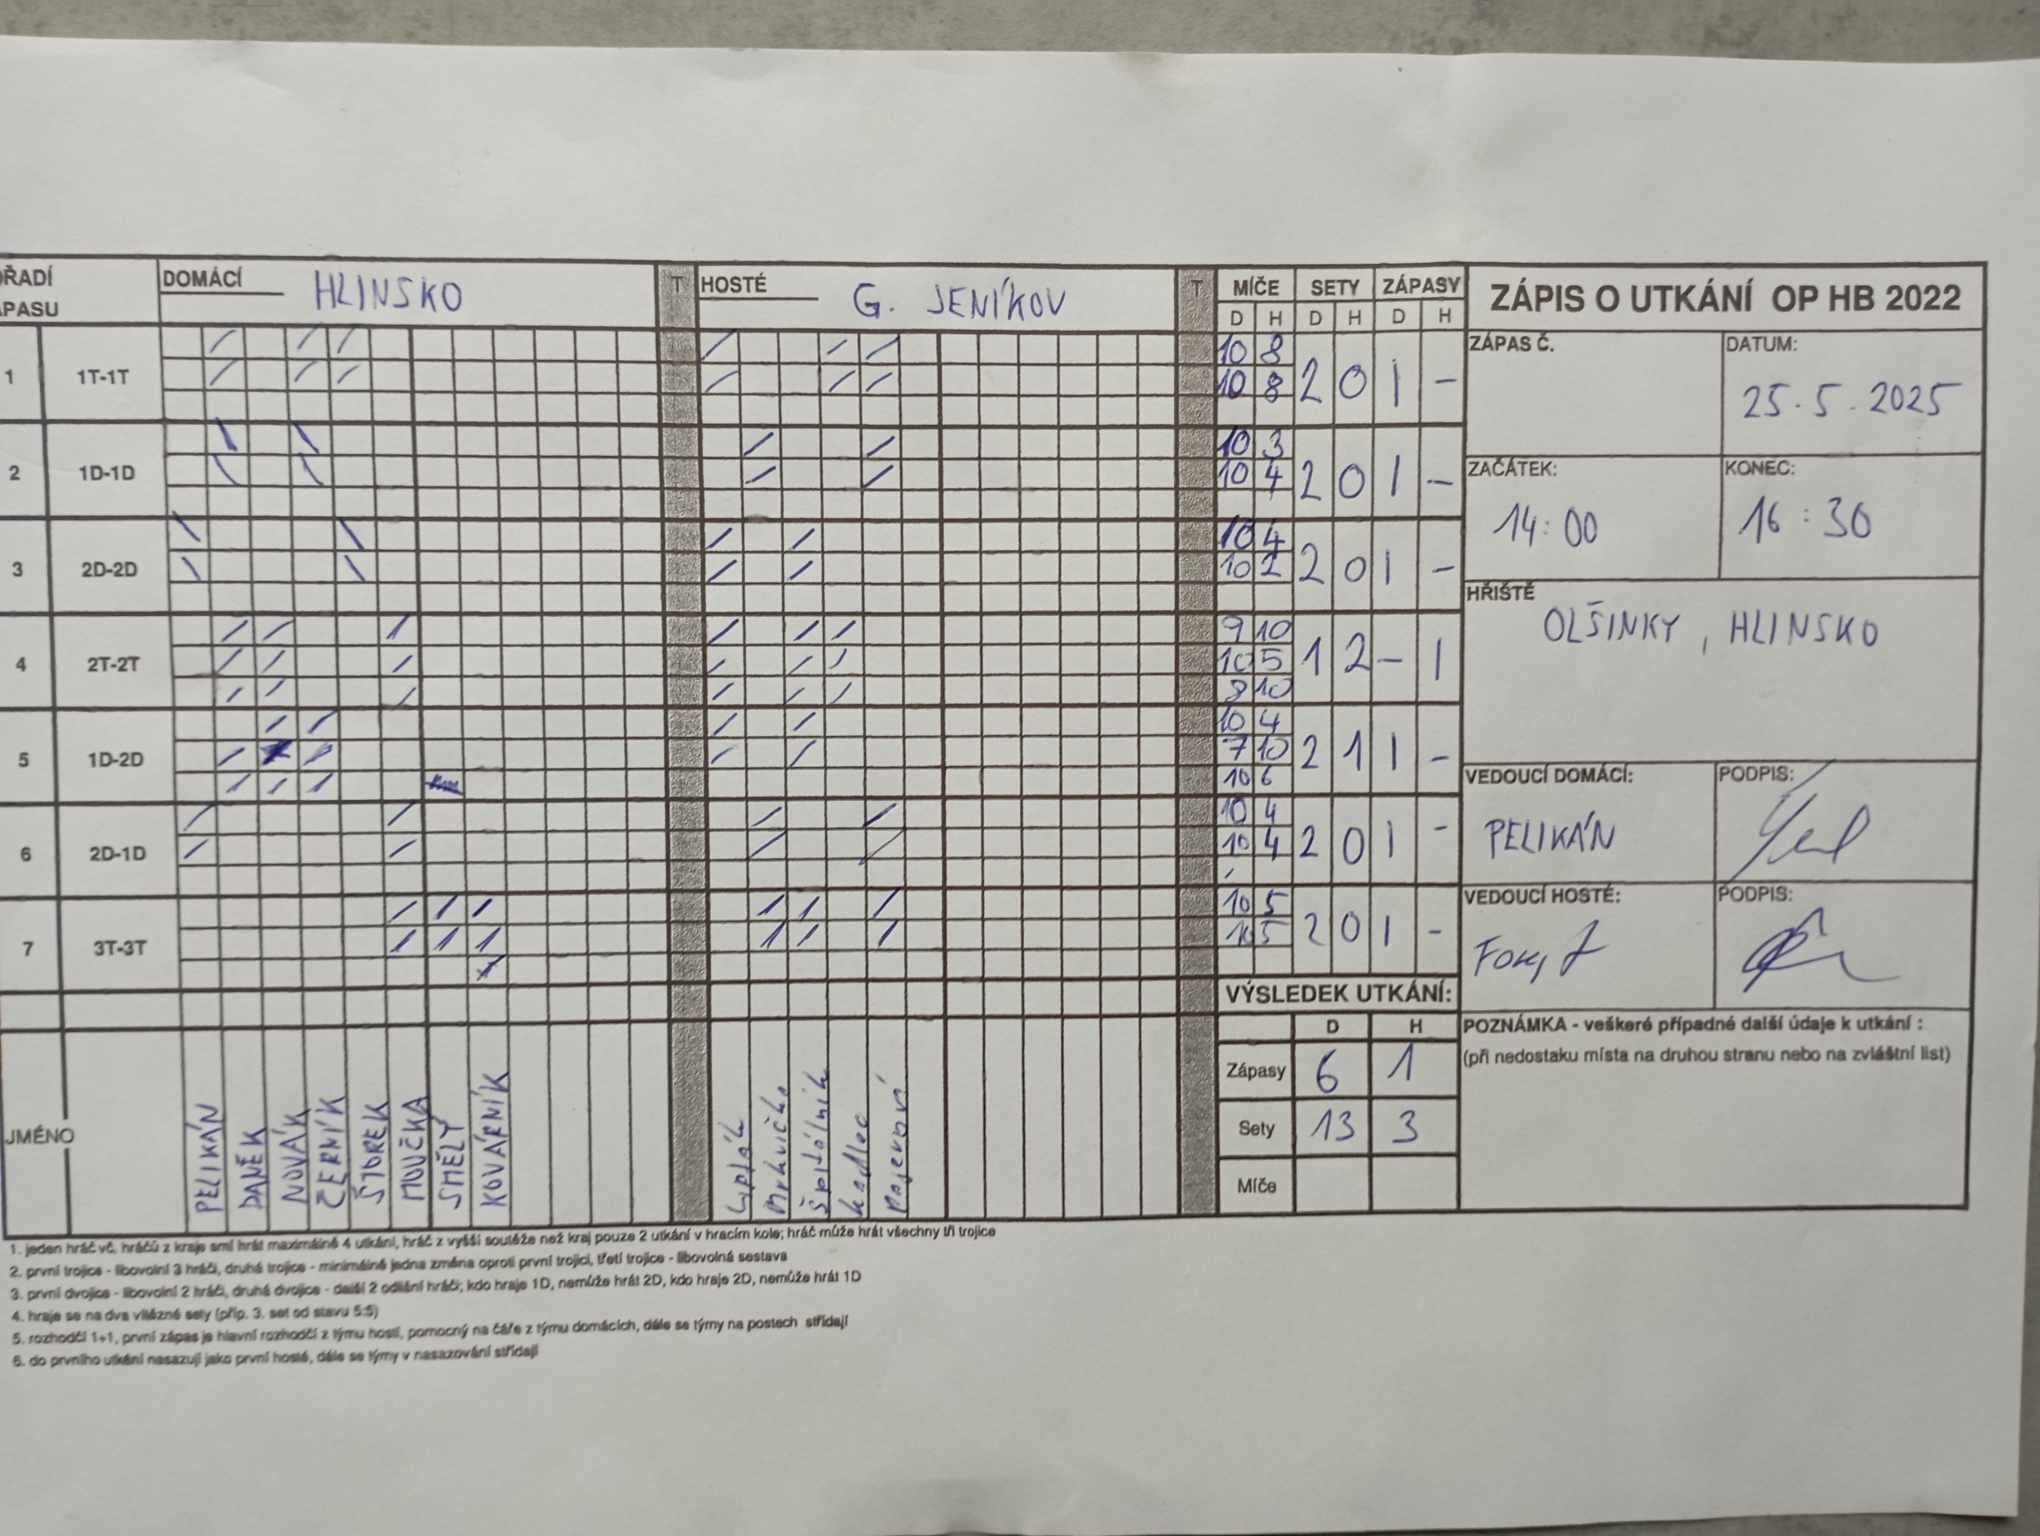 ŘADÍ
PASU
DOMÁCÍ HLINSKO T HOSTÉ G. JENÍKOV T MÍČE SETY ZÁPASY
D H D H D H
1 1T-1T 10 8 2 0 1 -
10 8
2 1D-1D 10 3 2 0 1 -
10 4
3 2D-2D 10 4 2 0 1 -
10 2
4 2T-2T 9 10 1 2 - 1
10 5
8 10
5 1D-2D 10 4 2 1 1 -
7 10
10 6
6 2D-1D 10 4 2 0 1 -
10 4
7 3T-3T 10 5 2 0 1 -
10 5
JMÉNO PELIKÁN DANĚK NOVÁK ČERNÍK ŠTOREK MOUČKA SMĚLÝ KOVÁRNÍK Lipták Mrkvička Špitálník Kadlec
VÝSLEDEK UTKÁNÍ:
D H
Zápasy 6 1
Sety 13 3
Míče
ZÁPIS O UTKÁNÍ OP HB 2022
ZÁPAS Č. DATUM:
25.5.2025
ZAČÁTEK: KONEC:
14:00 16:30
HŘIŠTĚ
OLŠINKY, HLINSKO
VEDOUCÍ DOMÁCÍ: PODPIS:
PELIKÁN
VEDOUCÍ HOSTÉ: PODPIS:
POZNÁMKA - veškeré případné další údaje k utkání :
(při nedostaku místa na druhou stranu nebo na zvláštní list)
1. jeden hráč vč. hráčů z kraje smí hrát maximálně 4 utkání, hráč z vyšší soutěže než kraj pouze 2 utkání v hracím kole; hráč může hrát všechny tři trojice
2. první trojice - libovolní 3 hráči, druhá trojice - minimálně jedna změna oproti první trojici, třetí trojice - libovolná sestava
3. první dvojice - libovolní 2 hráči, druhá dvojice - další 2 odlišní hráči; kdo hraje 1D, nemůže hrát 2D, kdo hraje 2D, nemůže hrát 1D
4. hraje se na dva vítězné sety (příp. 3. set od stavu 5:5)
5. rozhodčí 1+1, první zápas je hlavní rozhodčí z týmu hostí, pomocný na čáře z týmu domácích, dále se týmy na postech střídají
6. do prvního utkání nasazují jako první hosté, dále se týmy v nasazování střídají